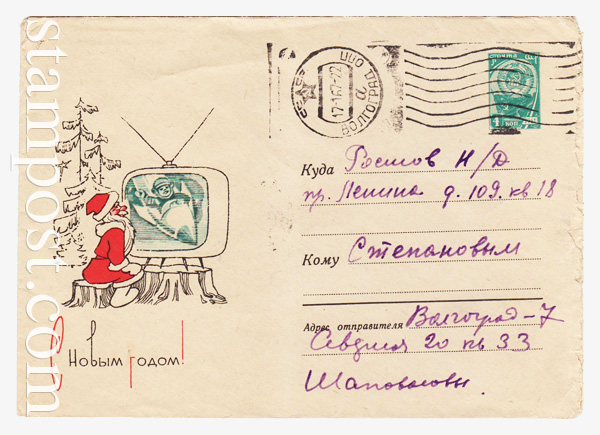 stampost.com
ПОЧТА СССР
4 КОП
СССР
ВОЛГОГРАД ПЖО
а
17 1 67-22
Куда Ростов Н/Д
пр. Ленина д. 109. кв 18
Кому Степановым
Адрес отправителя Волгоград-7
20 кв 33
Шаповаловы.
С Новым годом!